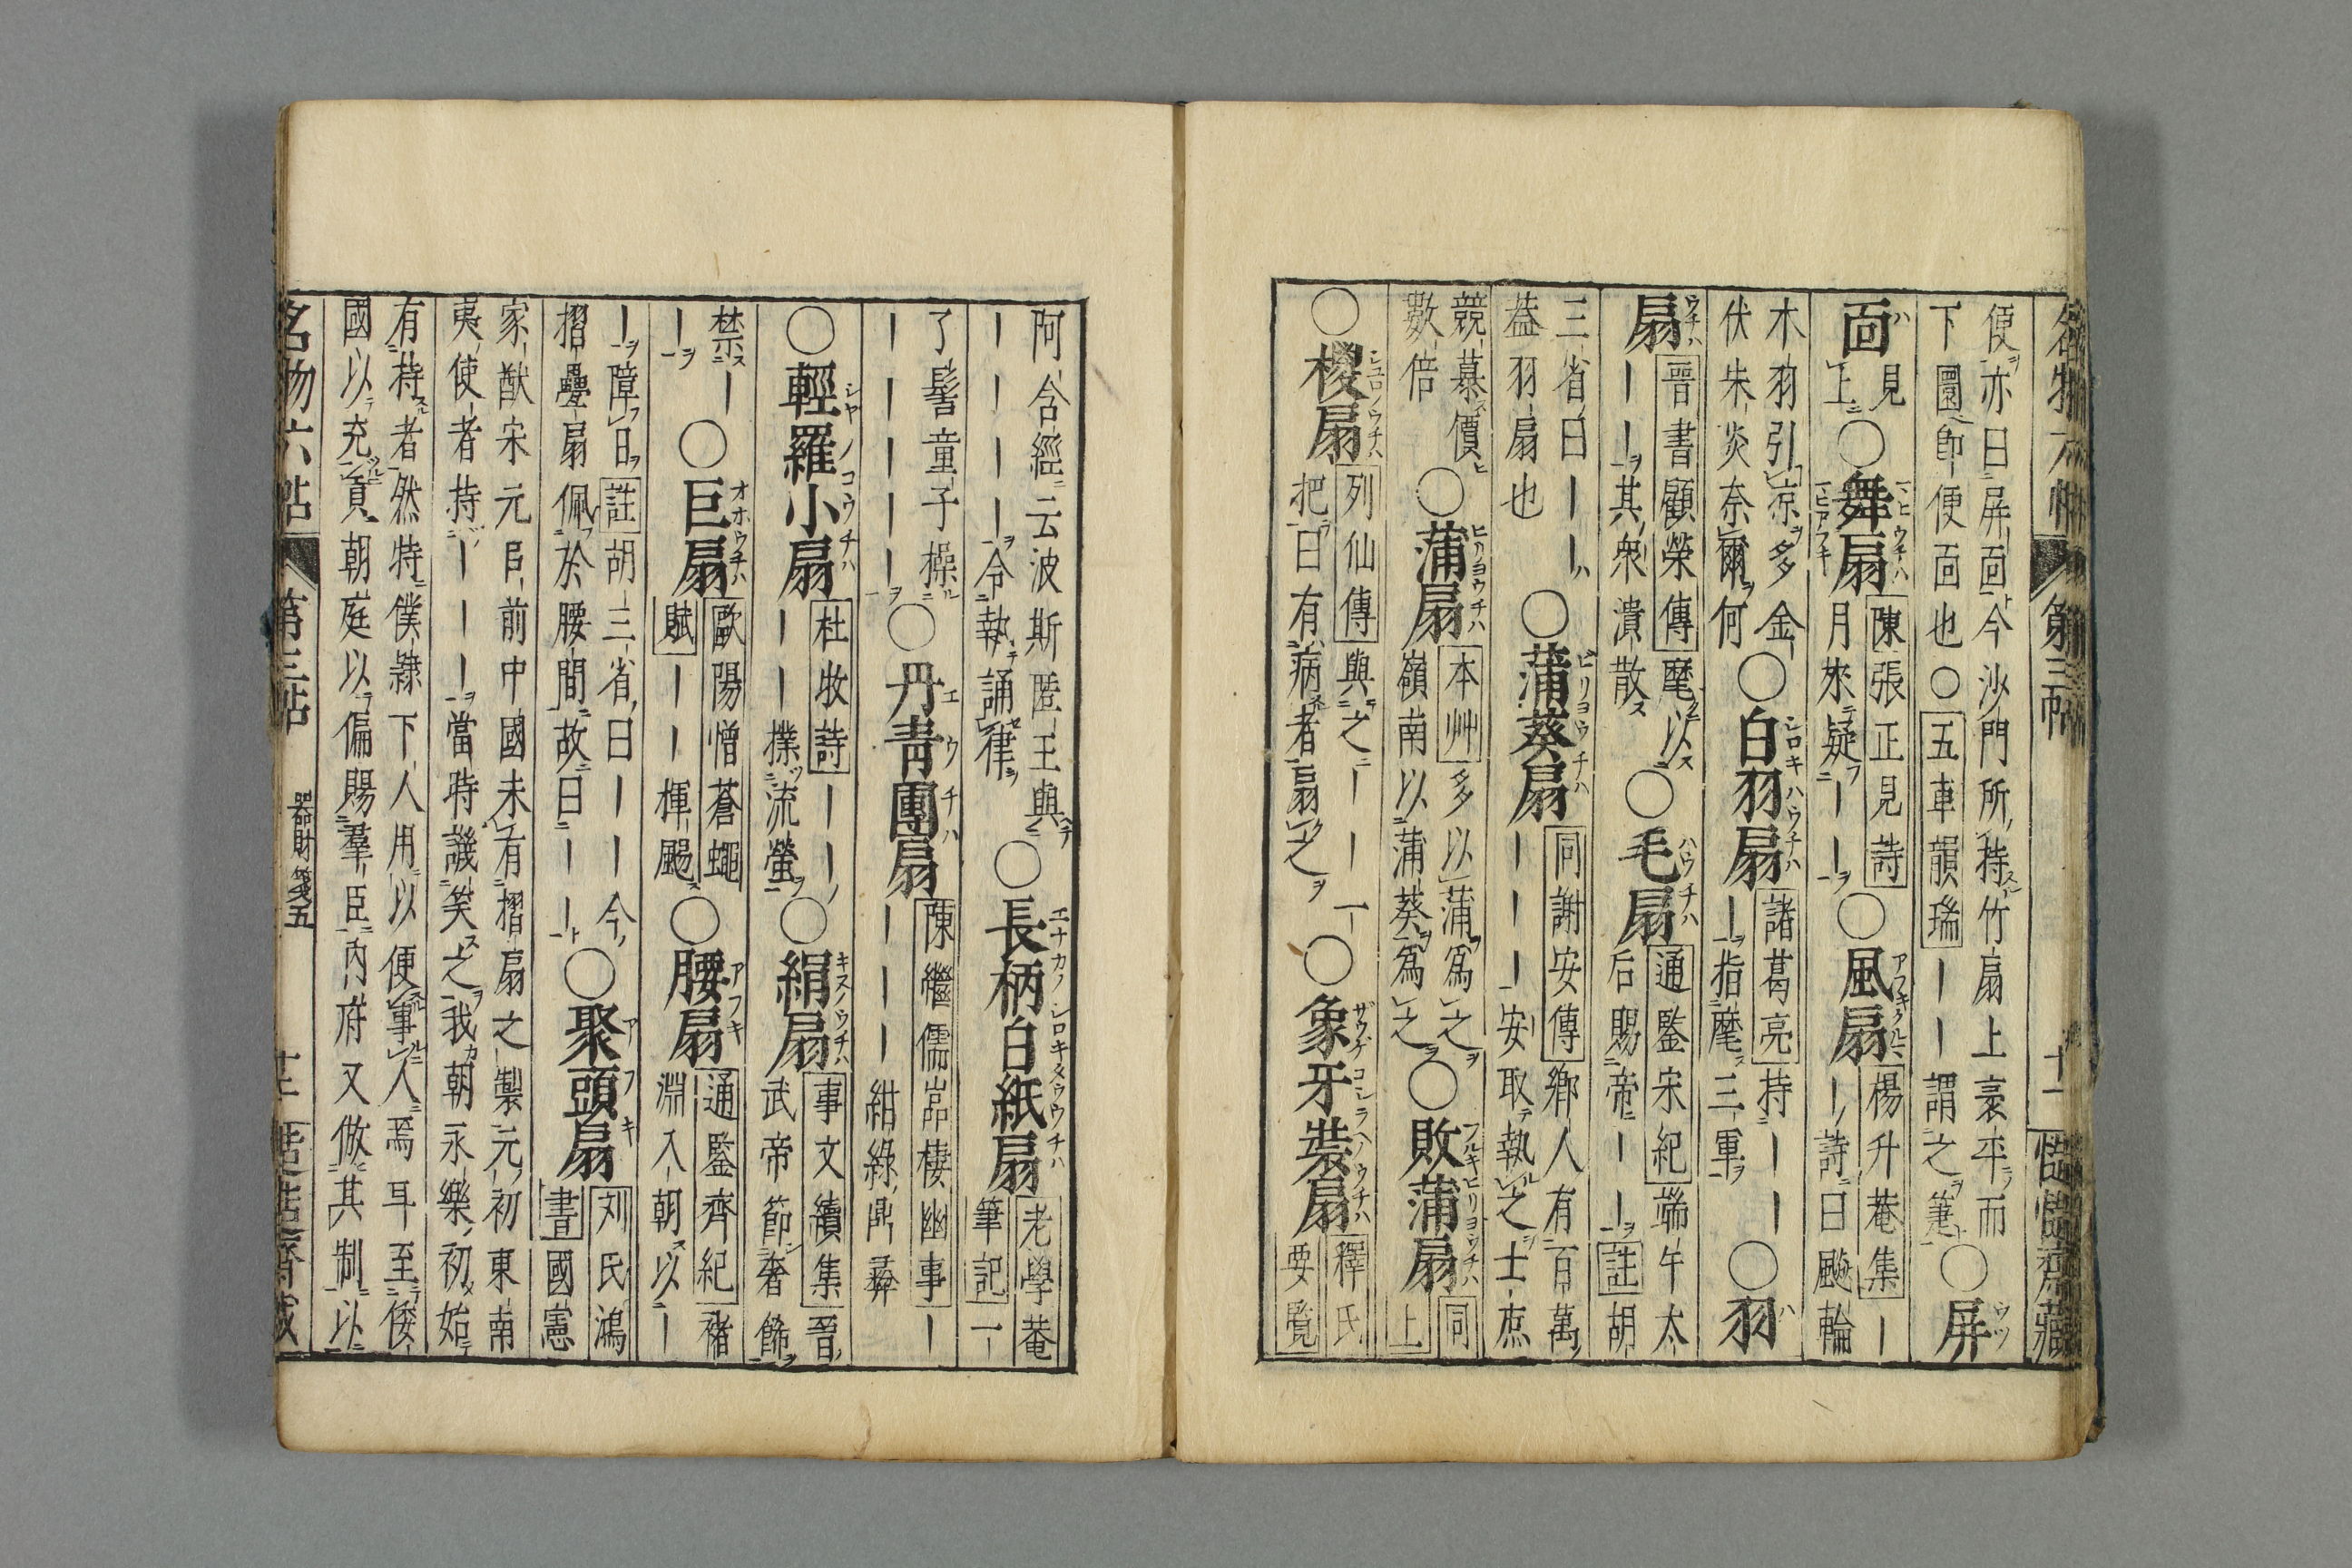 名物六帖 第三帖 十一 慥慥齋藏
便亦曰屏面今沙門所持竹扇上袤平而
下圜卽便面也○五車韻瑞｜｜謂之箑
○屏面
見上
○舞扇
陳張正見詩
月來疑｜｜
○風扇
楊升菴集｜
｜詩曰颰輪
木羽引凉多金
伏朱炎奈爾何
○白羽扇
諸葛亮持｜｜
｜指麾三軍
○羽扇
晉書顧榮傳麾以
｜｜其衆潰散
○毛扇
通鑑宋紀端午太
后賜帝｜｜註胡
三省曰｜｜
葢羽扇也
○蒲葵扇
同謝安傳鄕人有百萬
｜｜｜安取執之士庶
競慕價
數倍
○蒲扇
本艸多以蒲爲之
嶺南以蒲葵爲之
○敗蒲扇
同上
○椶扇
列仙傳與之一｜｜
把曰有病者扇之
○象牙裝扇
釋氏要覧
阿含經云波斯陸王與
｜｜｜｜令執誦律
○長柄白紙扇
老學菴筆記一｜
了髻童子操
｜｜｜｜｜
○丹靑團扇
陳繼儒嵓棲幽事｜
｜｜｜紺綠鼎彝
○輕羅小扇
杜收詩｜｜
｜｜撲流螢
○絹扇
事文續集晉
武帝節奢餙
禁｜
｜
○巨扇
歐陽憎蒼蠅
賦｜｜揮颺
○腰扇
通鑒齊紀禇
淵入朝以｜
｜障日註胡三省曰｜｜今
摺疊扇佩於腰間故曰｜｜
○聚頭扇
刘氏鴻書國憲
家猷宋元㠯前中國未有摺扇之製元初東南
夷使者持｜｜｜當時譏笑之我朝永樂初始
有持者然特僕隸下人用以便事人焉耳至倭
國以充貢朝庭以偏賜羣臣內府又倣其制以
名物六帖 第三帖 器財箋五 十二 慥慥齋藏